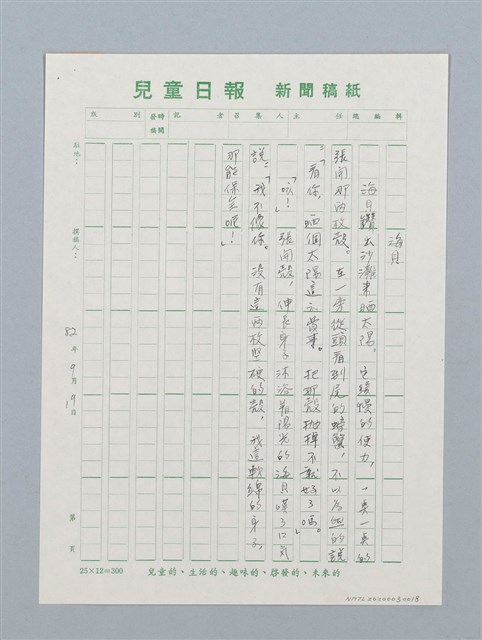 兒童日報 新聞稿紙
版 別 發稿時間 記 者 召 集 人 主 任 總 編 輯
駐地：
撰稿人：
82年9月19日
第 頁
海貝
海貝鑽出沙灘來晒太陽，它緩慢的使力，一吳一吳的
張開那兩枚殼。在一旁從頭看到尾的螃蟹，不以為然的說
：「看你，晒個太陽這麼費事。把那殼拋掉不就好了嗎。」
「唉！」張開殼，伸長身子沐浴着陽光的海貝嘆了口氣
說：「我不像你。沒有這兩枚堅硬的殼，我這軟綿的身子，
那能保全呢！」
25×12=300
兒童的、生活的、趣味的、啓發的、未來的
NMTL20200030018